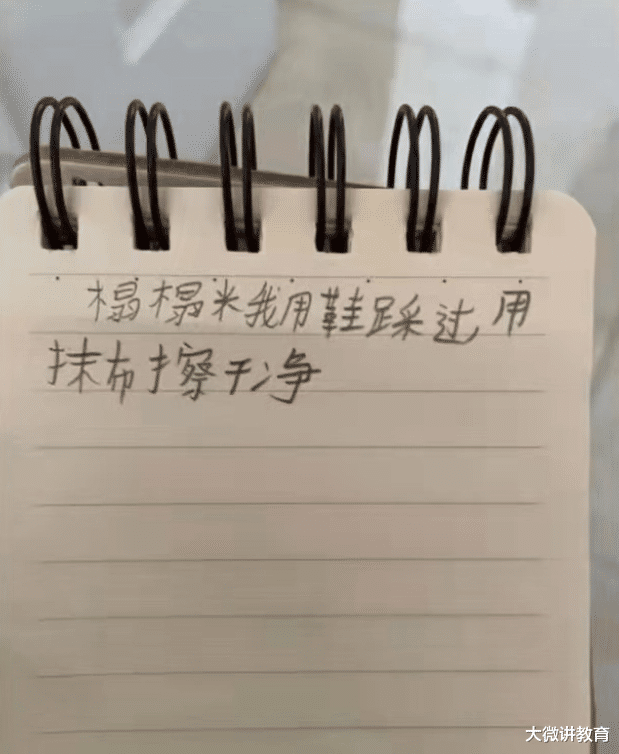 榻榻米我用鞋踩过用
抹布擦干净
大微讲教育